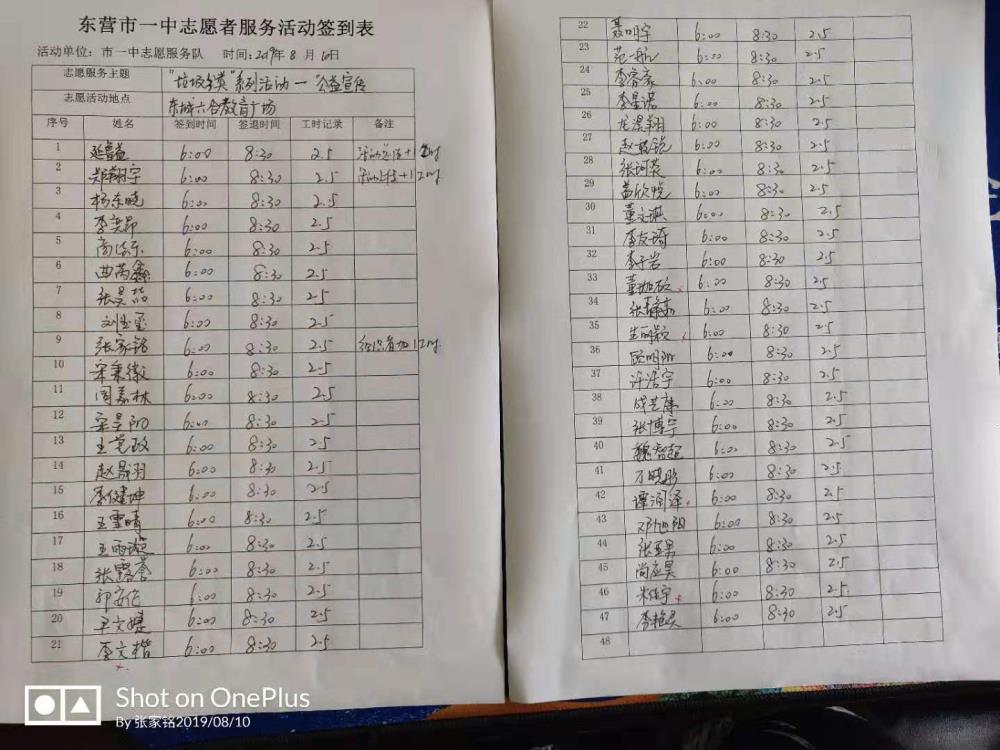 东营市一中志愿者服务活动签到表
活动单位：市一中志愿服务队 时间：2019年8月10日
志愿服务主题 "垃圾分类"系列活动一"公益宣传
志愿活动地点 东城六合教育广场
序号 姓名 签到时间 签退时间 工时记录 备注
1 延鲁益 6:00 8:30 2.5
2 郑翔宇 6:00 8:30 2.5
3 杨东晓 6:00 8:30 2.5
4 李奕昂 6:00 8:30 2.5
5 商浩东 6:00 8:30 2.5
6 曲芮鑫 6:00 8:30 2.5
7 张昊喆 6:00 8:30 2.5
8 刘玉玺 6:00 8:30 2.5
9 张家铭 6:00 8:30 2.5
10 宋秉徽 6:00 8:30 2.5
11 周嘉林 6:00 8:30 2.5
12 宋昊阳 6:00 8:30 2.5
13 6:00 8:30 2.5
14 赵晟羽 6:00 8:30 2.5
15 李健坤 6:00 8:30 2.5
16 王雪晴 6:00 8:30 2.5
17 王雨璇 6:00 8:30 2.5
18 张露荟 6:00 8:30 2.5
19 郭安伦 6:00 8:30 2.5
20 尹文婕 6:00 8:30 2.5
21 李文楷 6:00 8:30 2.5
22 聂明宇 6:00 8:30 2.5
23 范一航 6:00 8:30 2.5
24 李睿豪 6:00 8:30 2.5
25 李星诺 6:00 8:30 2.5
26 龙湜翔 6:00 8:30 2.5
27 赵敏锐 6:00 8:30 2.5
28 张珂荧 6:00 8:30 2.5
29 盖欣悦 6:00 8:30 2.5
30 董文淇 6:00 8:30 2.5
31 李友琦 6:00 8:30 2.5
32 李子岩 6:00 8:30 2.5
33 6:00 8:30 2.5
34 6:00 8:30 2.5
35 生雨颖 6:00 8:30 2.5
36 6:00 8:30 2.5
37 许浩宇 6:00 8:30 2.5
38 6:00 8:30 2.5
39 张博宇 6:00 8:30 2.5
40 魏智超 6:00 8:30 2.5
41 万晓彤 6:00 8:30 2.5
42 谭润泽 6:00 8:30 2.5
43 邓旭翔 6:00 8:30 2.5
44 张亚男 6:00 8:30 2.5
45 尚应昊 6:00 8:30 2.5
46 朱佳宇 6:00 8:30 2.5
47 李艳昊 6:00 8:30 2.5
48
Shot on OnePlus
By 张家铭2019/08/10